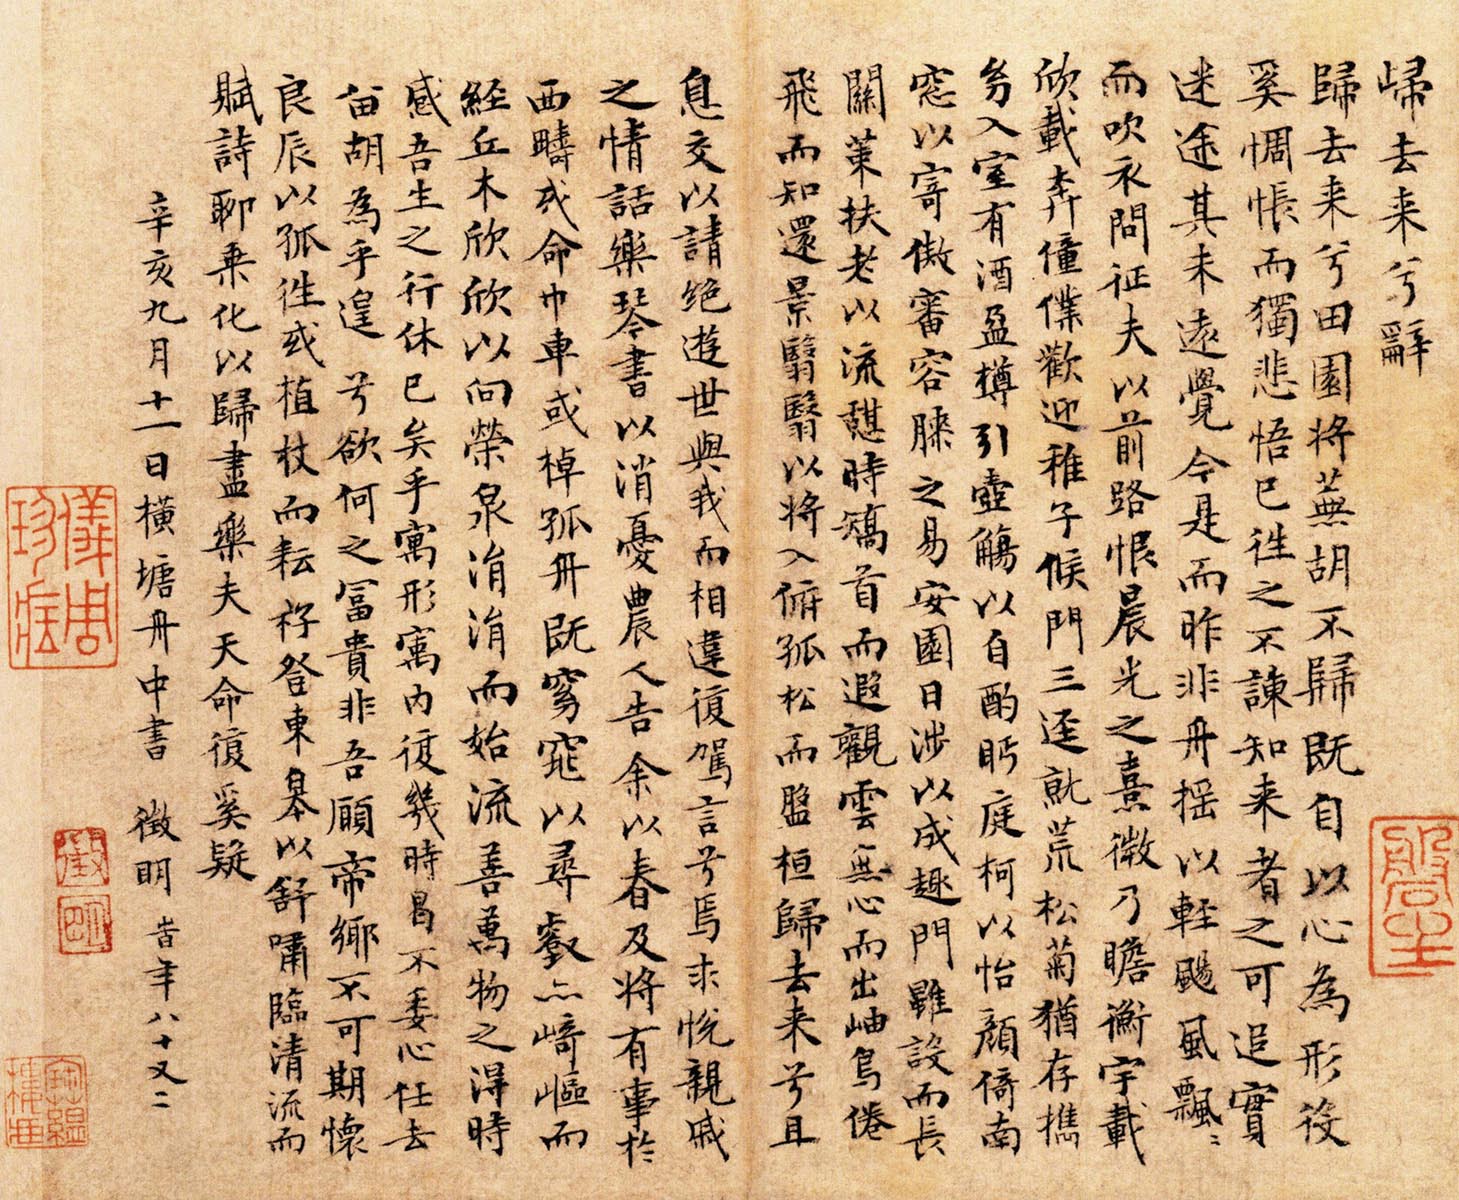 歸去来兮辭
歸去来兮田園将蕪胡不歸既自以心為形役
奚惆悵而獨悲悟已往之不諫知来者之可追實
迷途其未遠覺今是而昨非舟揺以軽颺風飄〻
而吹衣問征夫以前路恨晨光之熹微乃瞻衡宇載
欣載奔僮僕歡迎稚子候門三逕就荒松菊猶存攜
幼入室有酒盈樽引壺觴以自酌眄庭柯以怡顔倚南
窓以寄傲審容膝之易安園日涉以成趣門雖設而長
關策扶老以流憩時矯首而遐觀雲無心而出岫鳥倦
飛而知還景翳翳以将入俯孤松而盤桓歸去来兮且
息交以請絶遊世與我而相違復駕言兮焉求悅親戚
之情話樂琴書以消憂農人告余以春及将有事於
西疇或命巾車或棹孤舟既窈窕以尋壑亦崎嶇而
経丘木欣欣以向榮泉涓涓而始流善萬物之得時
感吾生之行休已矣乎寓形寓内復幾時曷不委心任去
留胡為乎遑兮欲何之冨貴非吾願帝鄉不可期懷
良辰以孤往或植杖而耘耔登東皋以舒嘯臨清流而
賦詩聊乗化以歸盡樂夫天命復奚疑
辛亥九月十一日横塘舟中書 徵明 旹年八十又二
徵
明
儀周珍藏